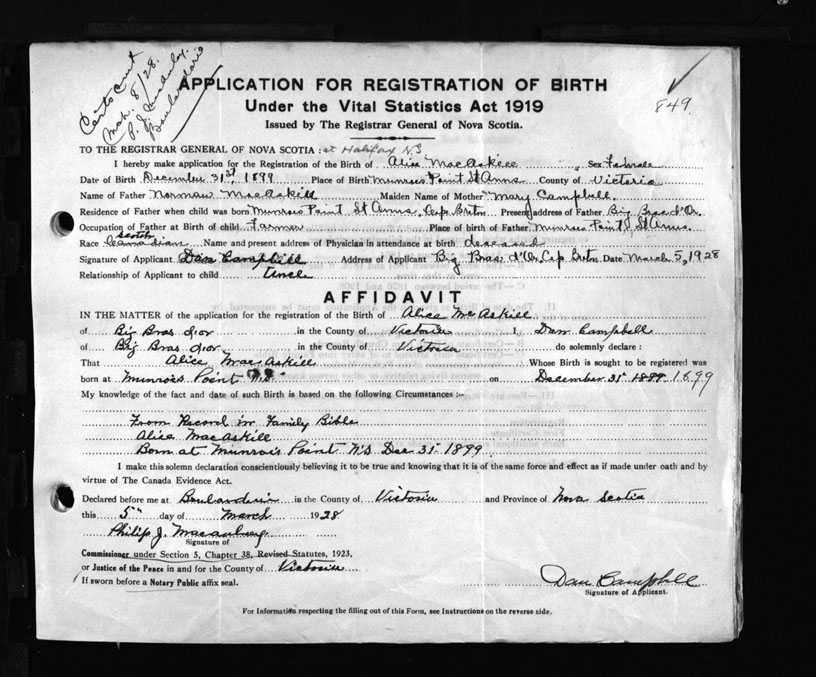 Certs sent
Mch. 8/28.
P. J. Macaulay.
Boulardarie
849.
APPLICATION FOR REGISTRATION OF BIRTH
Under the Vital Statistics Act 1919
Issued by The Registrar General of Nova Scotia.
TO THE REGISTRAR GENERAL OF NOVA SCOTIA: at Halifax N.S
I hereby make application for the Registration of the Birth of Alice MacAskill Sex Female
Date of Birth December 31st, 1899 Place of Birth Munroes Point St Anns County of Victoria
Name of Father Norman MacAskill Maiden Name of Mother Mary Campbell
Residence of Father when child was born Munroes Point St Anns, Cap Breton Present address of Father Big Bras d'Or.
Occupation of Father at Birth of child Farmer Place of birth of Father Munroes Point, St Anns.
Race Scotch Canadian Name and present address of Physician in attendance at birth deseased
Signature of Applicant Dan Campbell Address of Applicant Big Bras d'Or, Cap Breton Date March 5, 1928
Relationship of Applicant to child Uncle
AFFIDAVIT
IN THE MATTER of the application for the registration of the Birth of Alice McAskill
of Big Bras d'or in the County of Victoria I, Dan Campbell
of Big Bras d'or in the County of Victoria do solemnly declare :
That Alice MacAskill Whose Birth is sought to be registered was
born at Munroes Point N.S. on December 31st 1899 1899
My knowledge of the fact and date of such Birth is based on the following Circumstances :-
From Record in Family Bible
Alice MacAskill
Born at Munroes Point N'S Dec 31st 1899.
I make this solemn declaration conscientiously believing it to be true and knowing that it is of the same force and effect as if made under oath and by
virtue of The Canada Evidence Act.
Declared before me at Boulardarie in the County of Victoria and Province of Nova Scotia
this 5th day of March 1928
Philip J. Macaulay
Signature of
Commissioner under Section 5, Chapter 38, Revised Statutes, 1923,
or Justice of the Peace in and for the County of Victoria
If sworn before a Notary Public affix seal.
Dan Campbell
Signature of Applicant.
For Information respecting the filling out of this Form, see Instructions on the reverse side.